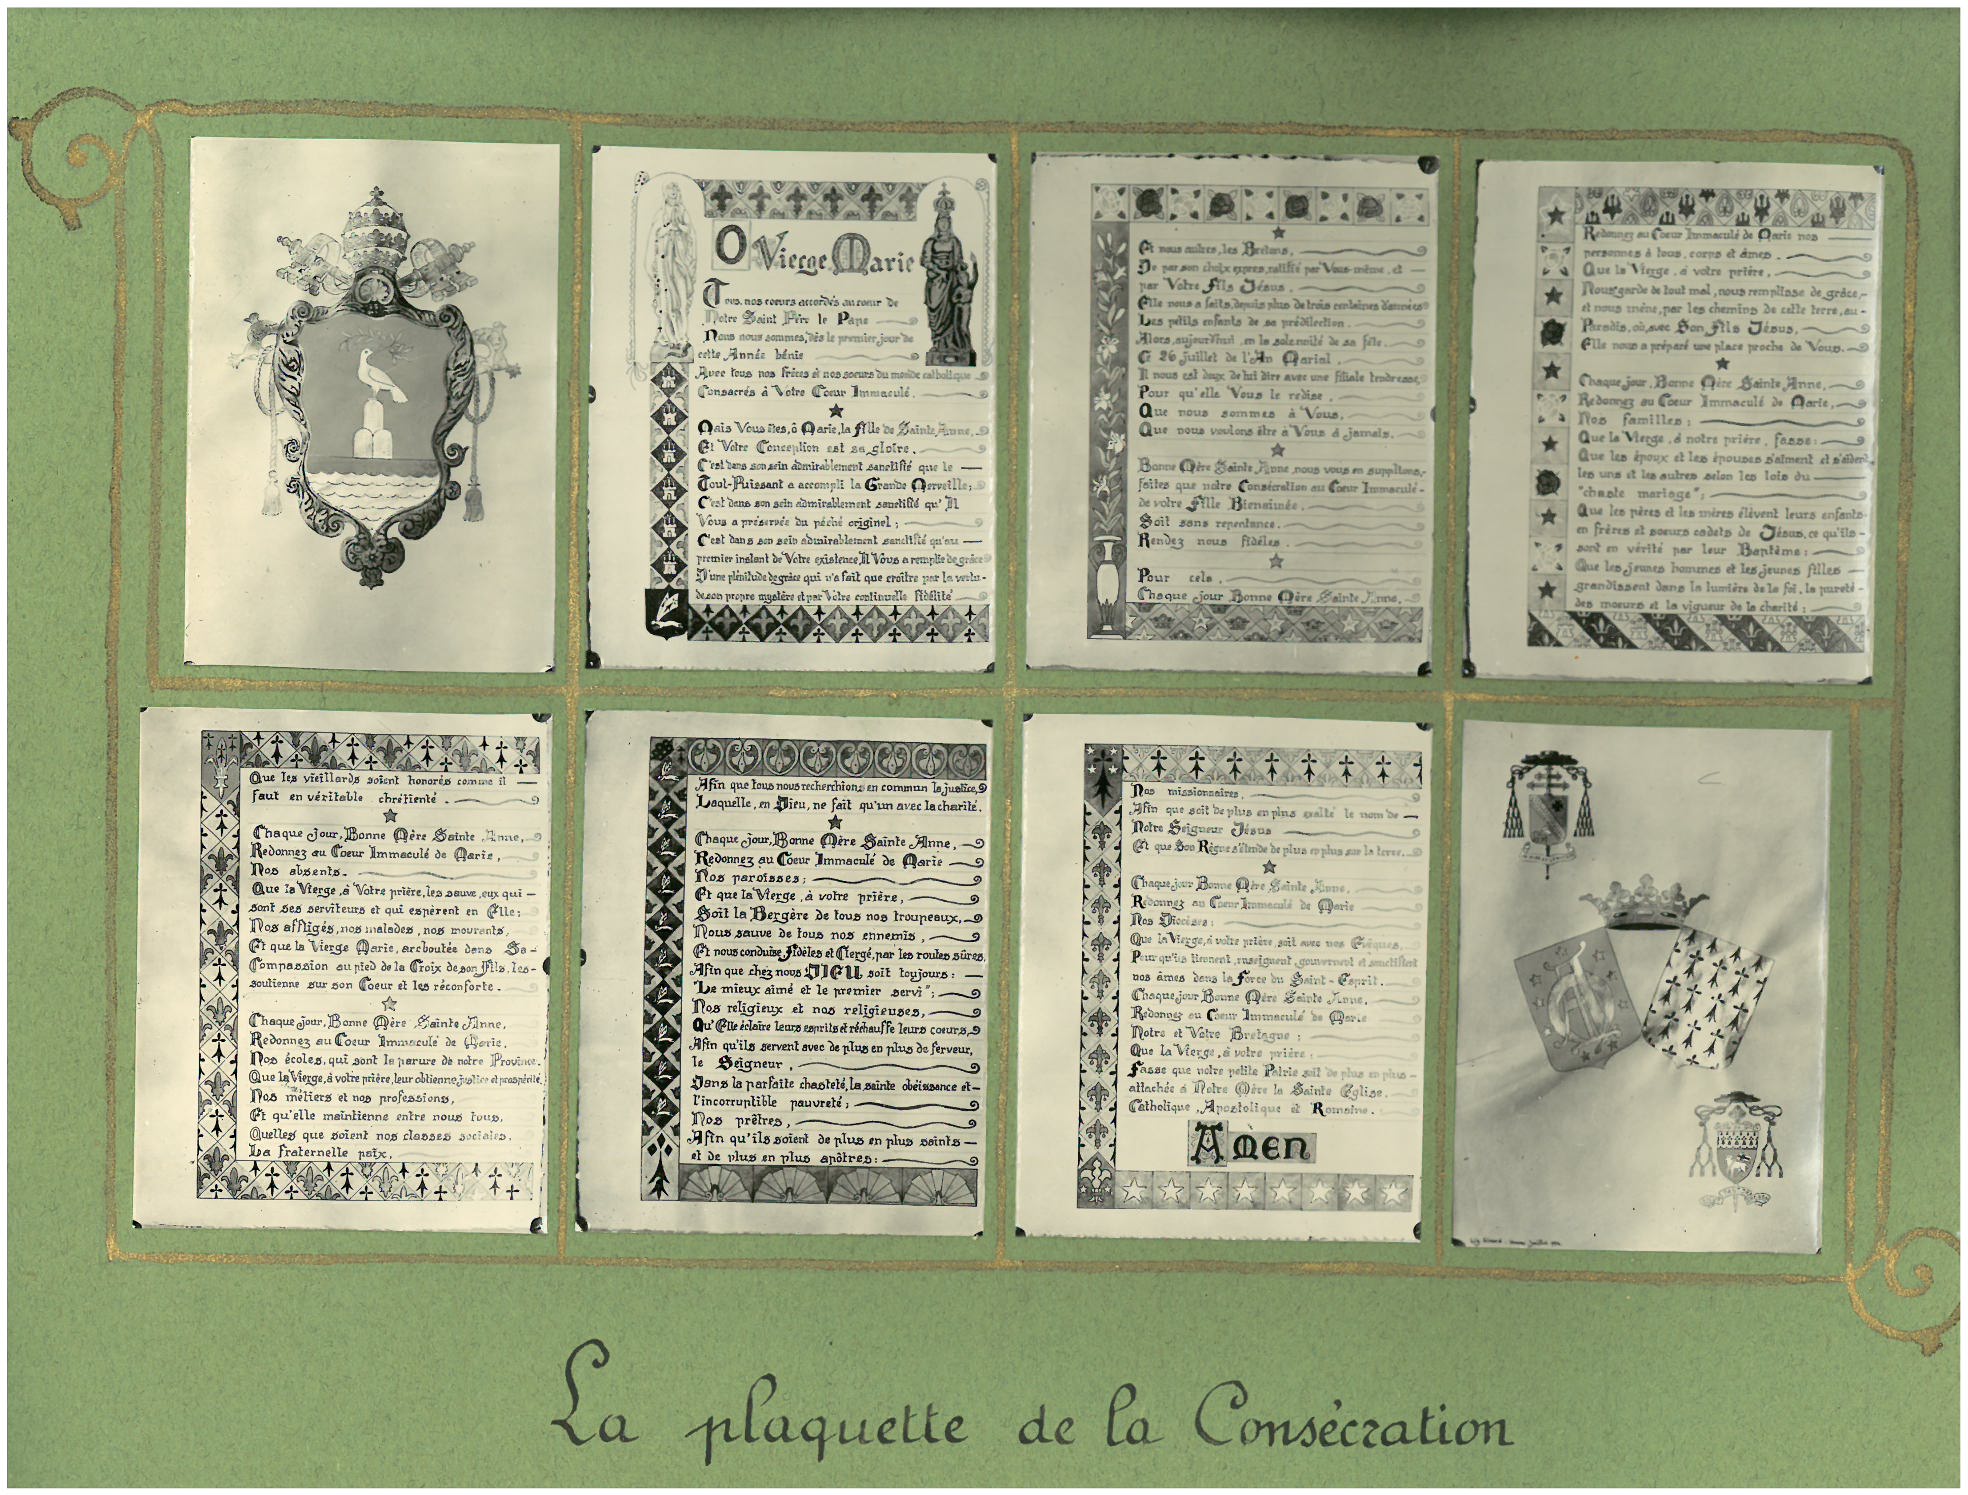 O Vierge Marie
Tous, nos coeurs accordés au coeur de
Notre Saint Père le Pape
Nous nous sommes, dès le premier jour de
cette Année bénie
Avec tous nos frères et nos soeurs du monde catholique
Consacrés à Votre Coeur Immaculé.
Mais Vous êtes, ô Marie, la fille de Sainte Anne,
Et Votre Conception est sa gloire.
C'est dans son sein admirablement sanctifié que le
Tout-Puissant a accompli la Grande Merveille;
C'est dans son sein admirablement sanctifié qu'Il
Vous a préservée du péché originel;
C'est dans son sein admirablement sanctifié qu'au
premier instant de Votre existence, Il Vous a remplie de grâce
D'une plénitude de grâce qui n'a fait que croître par la vertu-
de son propre mystère et par Votre continuelle fidélité
Et nous autres, les Bretons,
De par son choix exprès, ratifié par Vous-même, et
par Votre Fils Jésus.
Elle nous a faits, depuis plus de trois centaines d'années
Les petits enfants de sa prédilection.
Alors, aujourd'hui, en la solennité de sa fête.
Ce 26 juillet de l'An Marial,
Il nous est doux de lui dire avec une filiale tendresse,
Pour qu'elle Vous le redise,
Que nous sommes à Vous,
Que nous voulons être à Vous à jamais.
Bonne Mère Sainte Anne, nous vous en supplions,-
faites que notre Consécration au Coeur Immaculé-
de votre Fille Bienaimée,
Soit sans repentance.
Rendez nous fidèles.
Pour cela,
Chaque jour Bonne Mère Sainte Anne,
Redonnez au Coeur Immaculé de Marie nos
personnes à tous, corps et âmes.
Que la Vierge, à votre prière,
Nous garde de tout mal, nous remplisse de grâce,-
et nous mène, par les chemins de cette terre, au-
Paradis, où, avec Son Fils Jésus,
Elle nous a préparé une place proche de Vous.
Chaque jour, Bonne Mère Sainte Anne,
Redonnez au Coeur Immaculé de Marie,
Nos familles;
Que la Vierge, à notre prière, fasse:
Que les époux et les épouses s'aiment et s'aident
les uns et les autres selon les lois du
"chaste mariage";
Que les pères et les mères élèvent leurs enfants-
en frères et soeurs cadets de Jésus, ce qu'ils-
sont en vérité par leur Baptême;
Que les jeunes hommes et les jeunes filles
grandissent dans la lumière de la foi, la pureté-
des moeurs et la vigueur de la charité;
Que les vieillards soient honorés comme il
faut en véritable chrétienté.
Chaque jour, Bonne Mère Sainte Anne,
Redonnez au Coeur Immaculé de Marie,
Nos absents.
Que la Vierge, à Votre prière, les sauve, eux qui
sont ses serviteurs et qui espèrent en Elle;
Nos affligés, nos malades, nos mourants,
Et que la Vierge Marie, arcboutée dans Sa-
Compassion au pied de la Croix de son Fils, les-
soutienne sur son Coeur et les réconforte.
Chaque jour, Bonne Mère, Sainte Anne,
Redonnez au Coeur Immaculé de Marie.
Nos écoles, qui sont la parure de notre Province.
Que la Vierge, à votre prière, leur obtienne, justice et prospérité.
Nos métiers et nos professions,
Et qu'elle maintienne entre nous tous,
Quelles que soient nos classes sociales.
La fraternelle paix,
Afin que tous nous recherchions en commun la justice,
Laquelle, en Dieu, ne fait qu'un avec la charité.
Chaque jour, Bonne Mère Sainte Anne,
Redonnez au Coeur Immaculé de Marie
Nos paroisses;
Et que la Vierge, à votre prière,
Soit la Bergère de tous nos troupeaux,
Nous sauve de tous nos ennemis,
Et nous conduise, Fidèles et Clergé, par les routes sûres,
Afin que chez nous DIEU soit toujours:
"Le mieux aimé et le premier servi";
Nos religieux et nos religieuses,
Qu'Elle éclaire leurs esprits et réchauffe leurs coeurs,
Afin qu'ils servent avec de plus en plus de ferveur,
le Seigneur,
Dans la parfaite chasteté, la sainte obéissance et-
l'incorruptible pauvreté;
Nos prêtres,
Afin qu'ils soient de plus en plus saints
et de plus en plus apôtres:
Nos missionnaires,
Afin que soit de plus en plus exalté le nom de
Notre Seigneur Jésus
Et que Son Règne s'étende de plus en plus sur la terre.
Chaque jour Bonne Mère Sainte Anne,
Redonnez au Coeur Immaculé de Marie
Nos Diocèses;
Que la Vierge, à votre prière soit avec nos Evêques,
Pour qu'ils tiennent, enseignent, gouvernent et sanctifient
nos âmes dans la Force du Saint-Esprit.
Chaque jour Bonne Mère Sainte Anne,
Redonnez au Coeur Immaculé de Marie
Notre et Votre Bretagne;
Que la Vierge, à votre prière;
Fasse que notre petite Patrie soit de plus en plus-
attachée à Notre Mère la Sainte Eglise,
Catholique, Apostolique et Romaine.
AMEN
La plaquette de la Consécration